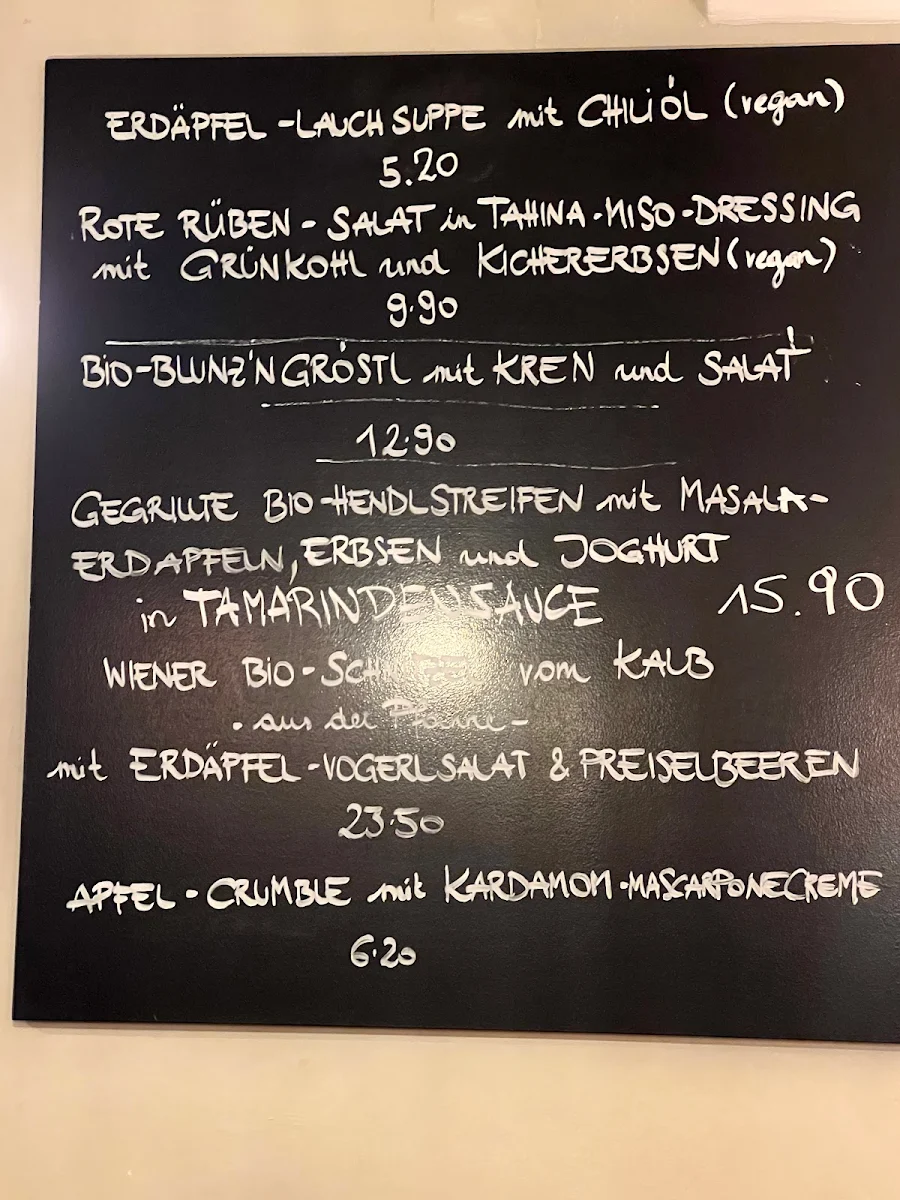 ERDÄPFEL-LAUCHSUPPE mit CHILIÖL (vegan)
5.20
ROTE RÜBEN-SALAT in TAHINA-MISO-DRESSING
mit GRÜNKOHL und KICHERERBSEN (vegan)
9.90
BIO-BLUNZ'NGRÖSTL mit KREN und SALAT
12.90
GEGRILLTE BIO-HENDLSTREIFEN mit MASALA-
ERDÄPFELN, ERBSEN und JOGHURT
in TAMARINDENSAUCE 15.90
WIENER BIO- vom KALB
- aus der Pfanne -
mit ERDÄPFEL-VOGERLSALAT & PREISELBEEREN
23.50
APFEL-CRUMBLE mit KARDAMOM-MASCARPONECREME
6.20